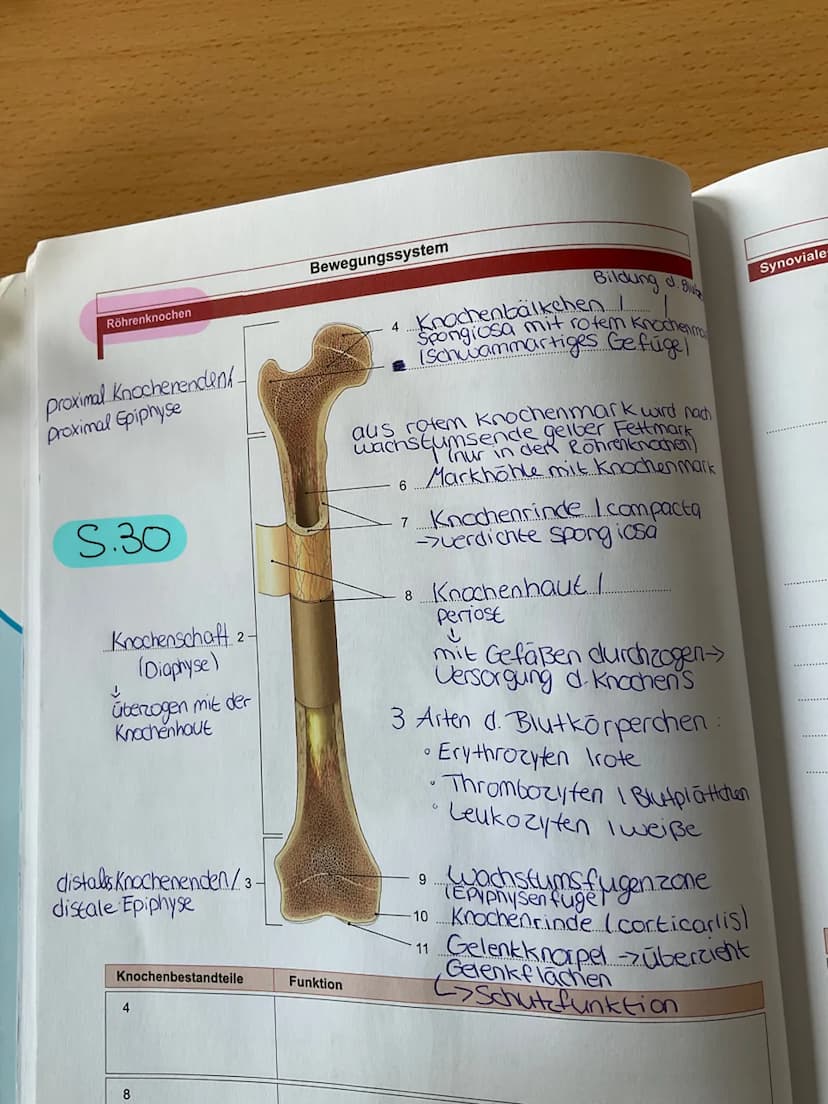 Bewegungssystem
Synoviale
Röhrenknochen
Bildung d.
4 Knochenbälkchen /
Spongiosa mit rotem Knochenma
(schwammartiges Gefüge)
proximal Knochenenden/
proximal Epiphyse
aus rotem Knochenmark wird nach
wachstumsende gelber Fettmark
(nur in den Röhrenknochen)
6 Markhöhle mit Knochenmark
7 Knochenrinde / compacta
→verdichte spongiosa
S.30
8 Knochenhaut /
periost
↓
mit Gefäßen durchzogen→
Versorgung d. Knochens
Knochenschaft 2
(Diaphyse)
↓
überzogen mit der
Knochenhaut
3 Arten d. Blutkörperchen:
• Erythrozyten / rote
• Thrombozyten / Blutplättchen
• Leukozyten / weiße
distals Knochenenden/ 3
distale Epiphyse
9 Wachstumsfugenzone
(Epyphysenfuge)
10 Knochenrinde (corticarlis)
11 Gelenkknorpel →überzieht
Gelenkflächen
↳ Schutzfunktion
Knochenbestandteile Funktion
4
8